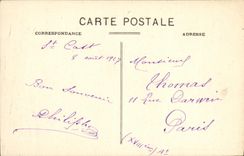 CARTE POSTALE
CORRESPONDANCE
ADRESSE
St Cast
8 août 1917
Bon Souvenir
Philippe
Monsieur
Thomas
11 Rue Darwin
Paris
(XVIIIème Ar)